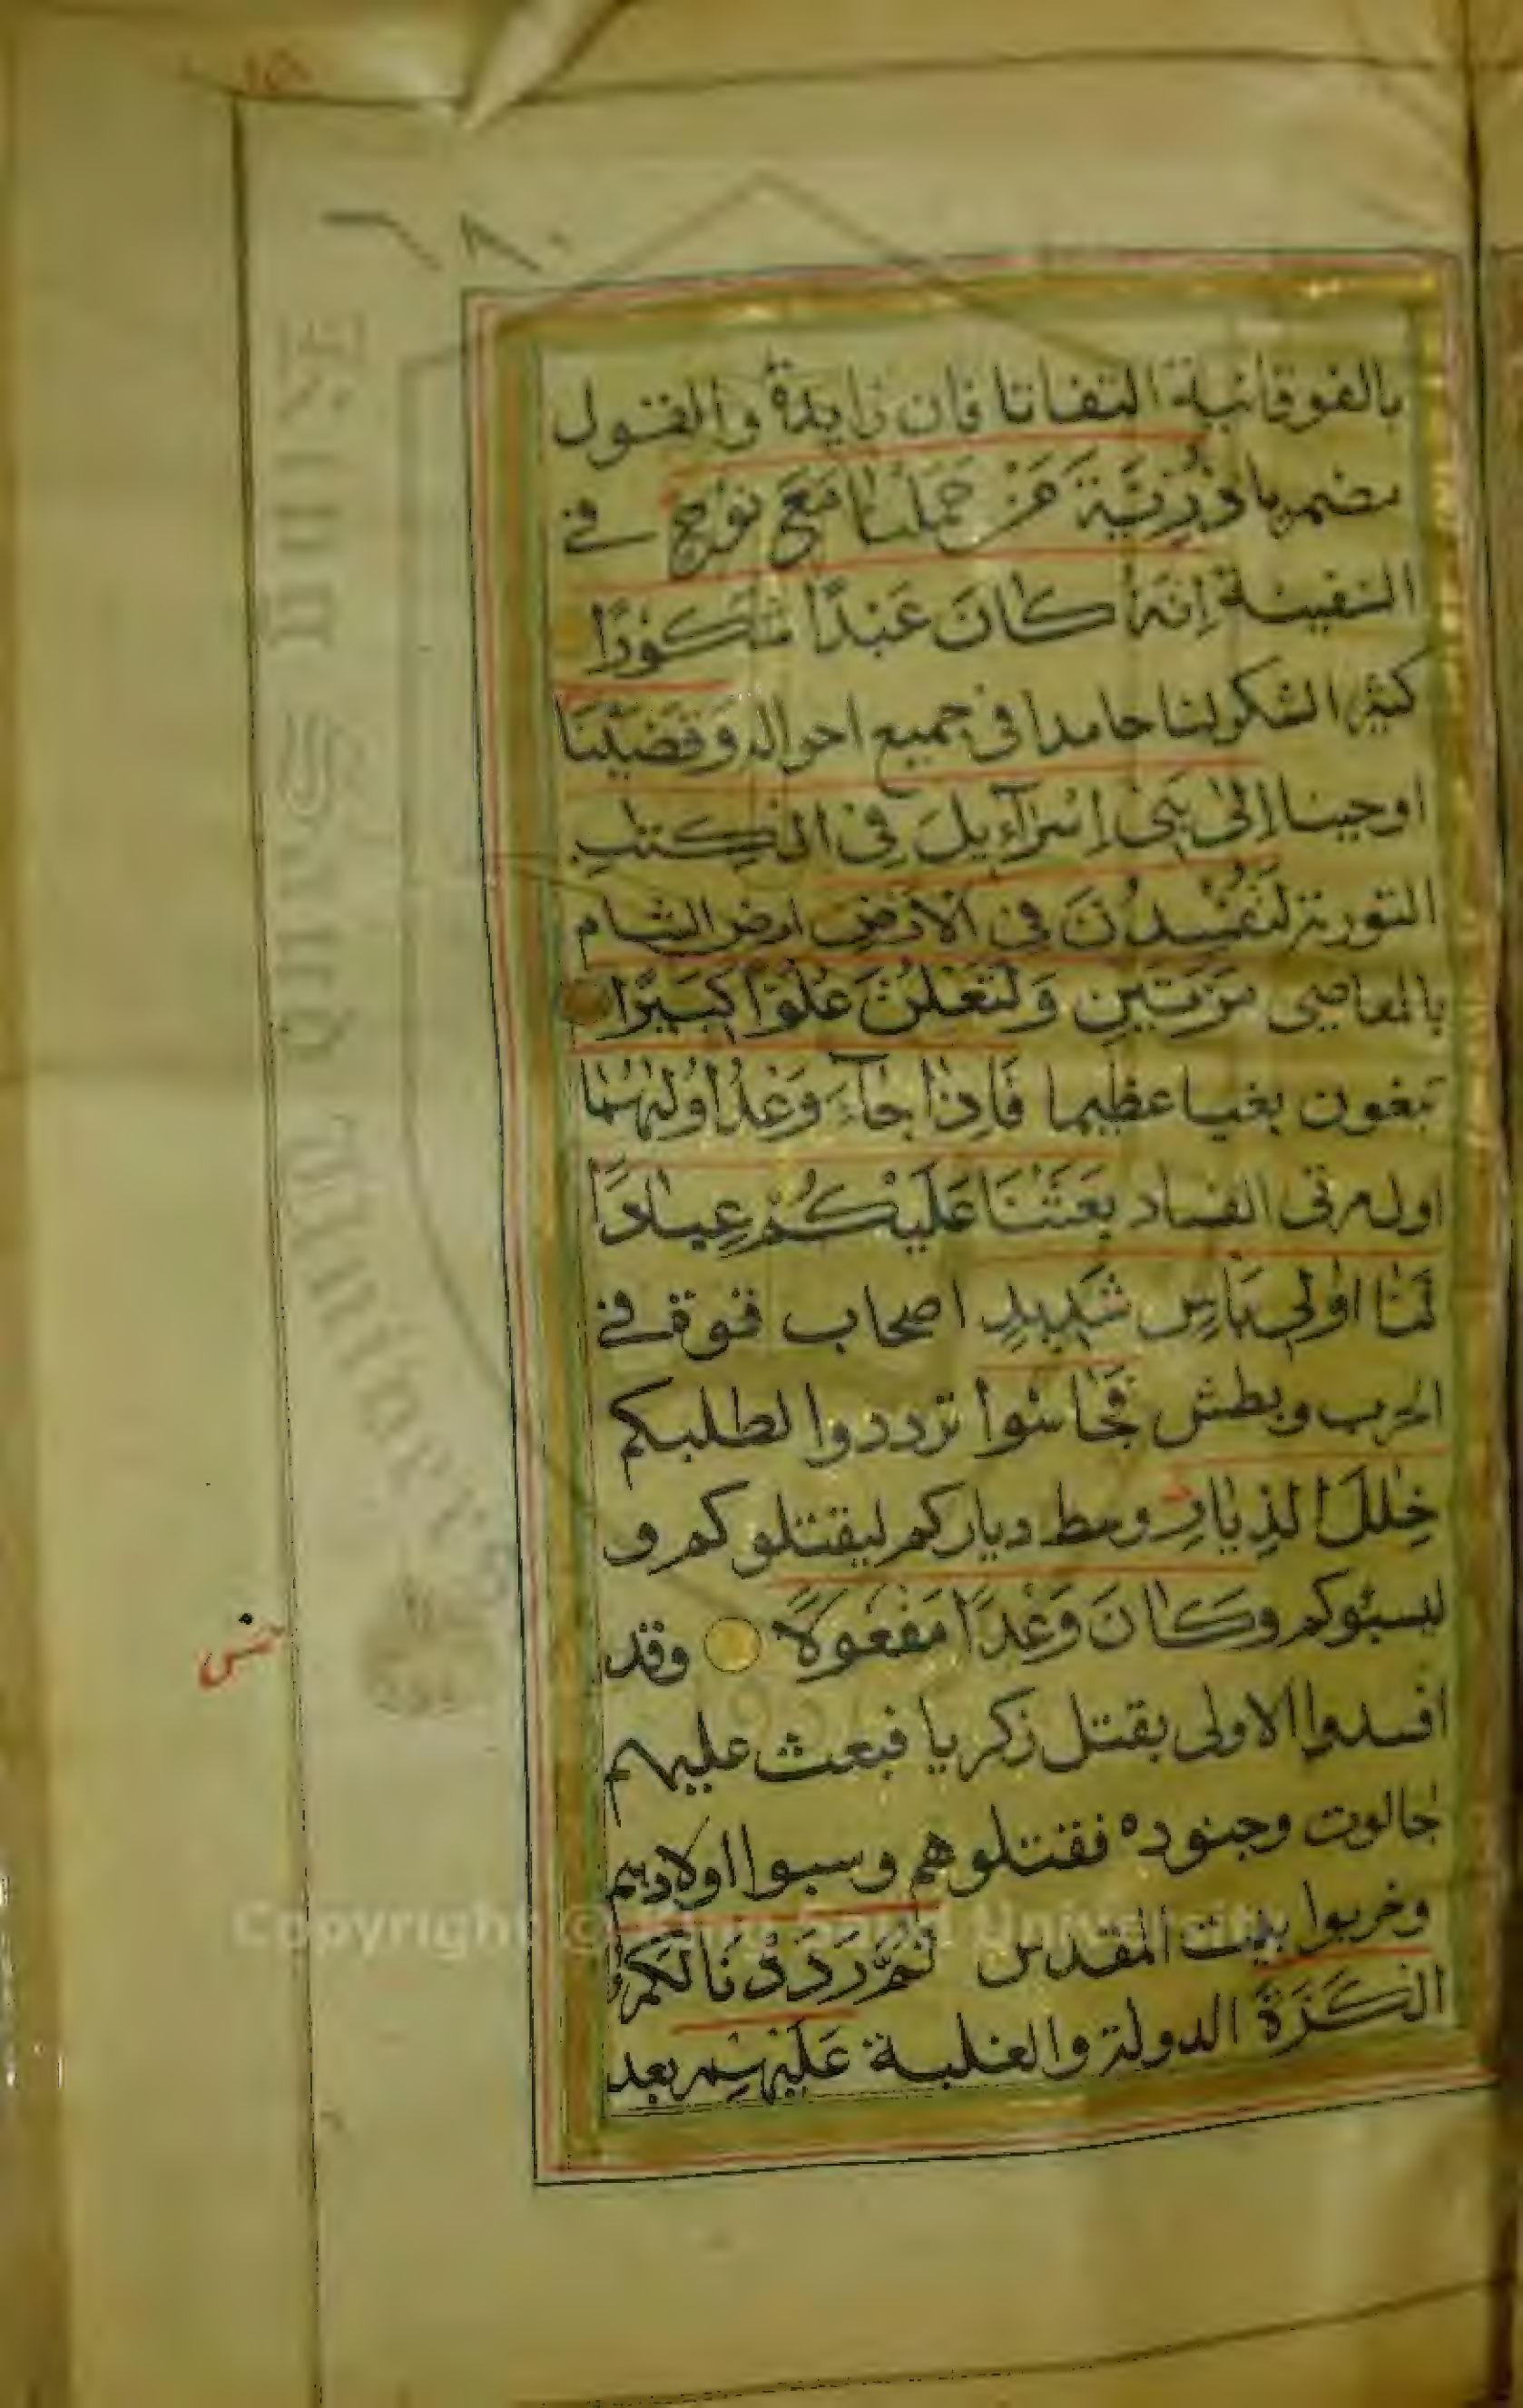 بالفوقانية التفاتا فان زايدة والقول
مضمر يا ذُرِّيَّةَ مَنْ حَمَلْنَا مَعَ نُوْحٍ في
السفينة اِنَّهُ كَانَ عَبْدًا شَكُوْرًا
كثير الشكر لنا حامدا في جميع احواله وَقَضَيْنَا
اوحينا اِلٰى بَنِي اِسْرَآءِيلَ فِي الْكِتٰبِ
التورية لَتُفْسِدُنَّ فِي الْاَرْضِ ارض الشام
بالمعاصي مَرَّتَيْنِ وَلَتَعْلُنَّ عُلُوًّا كَبِيْرًا
تبغون بغيا عظيما فَاِذَا جَآءَ وَعْدُ اُوْلٰىهُمَا
اوله مرتى الفساد بَعَثْنَا عَلَيْكُمْ عِبَادًا
لَّنَا اُولِي بَاْسٍ شَدِيدٍ اصحاب قوة في
الحرب وبطش فَجَاسُوا ترددوا لطلبكم
خِلٰلَ الدِّيَارِ وسط دياركم ليقتلوكم و
ليسبوكم وَكَانَ وَعْدًا مَفْعُوْلًا وقد
افسدوا الاولى بقتل زكريا فبعث عليهم
جالوت وجنوده فقتلوهم وسبوا اولادهم
وخربوا بيت المقدس ثُمَّ رَدَدْنَا لَكُمُ
الْكَرَّةَ الدولة والغلبة عَلَيْهِمْ بعد
Copyright © King Saud University